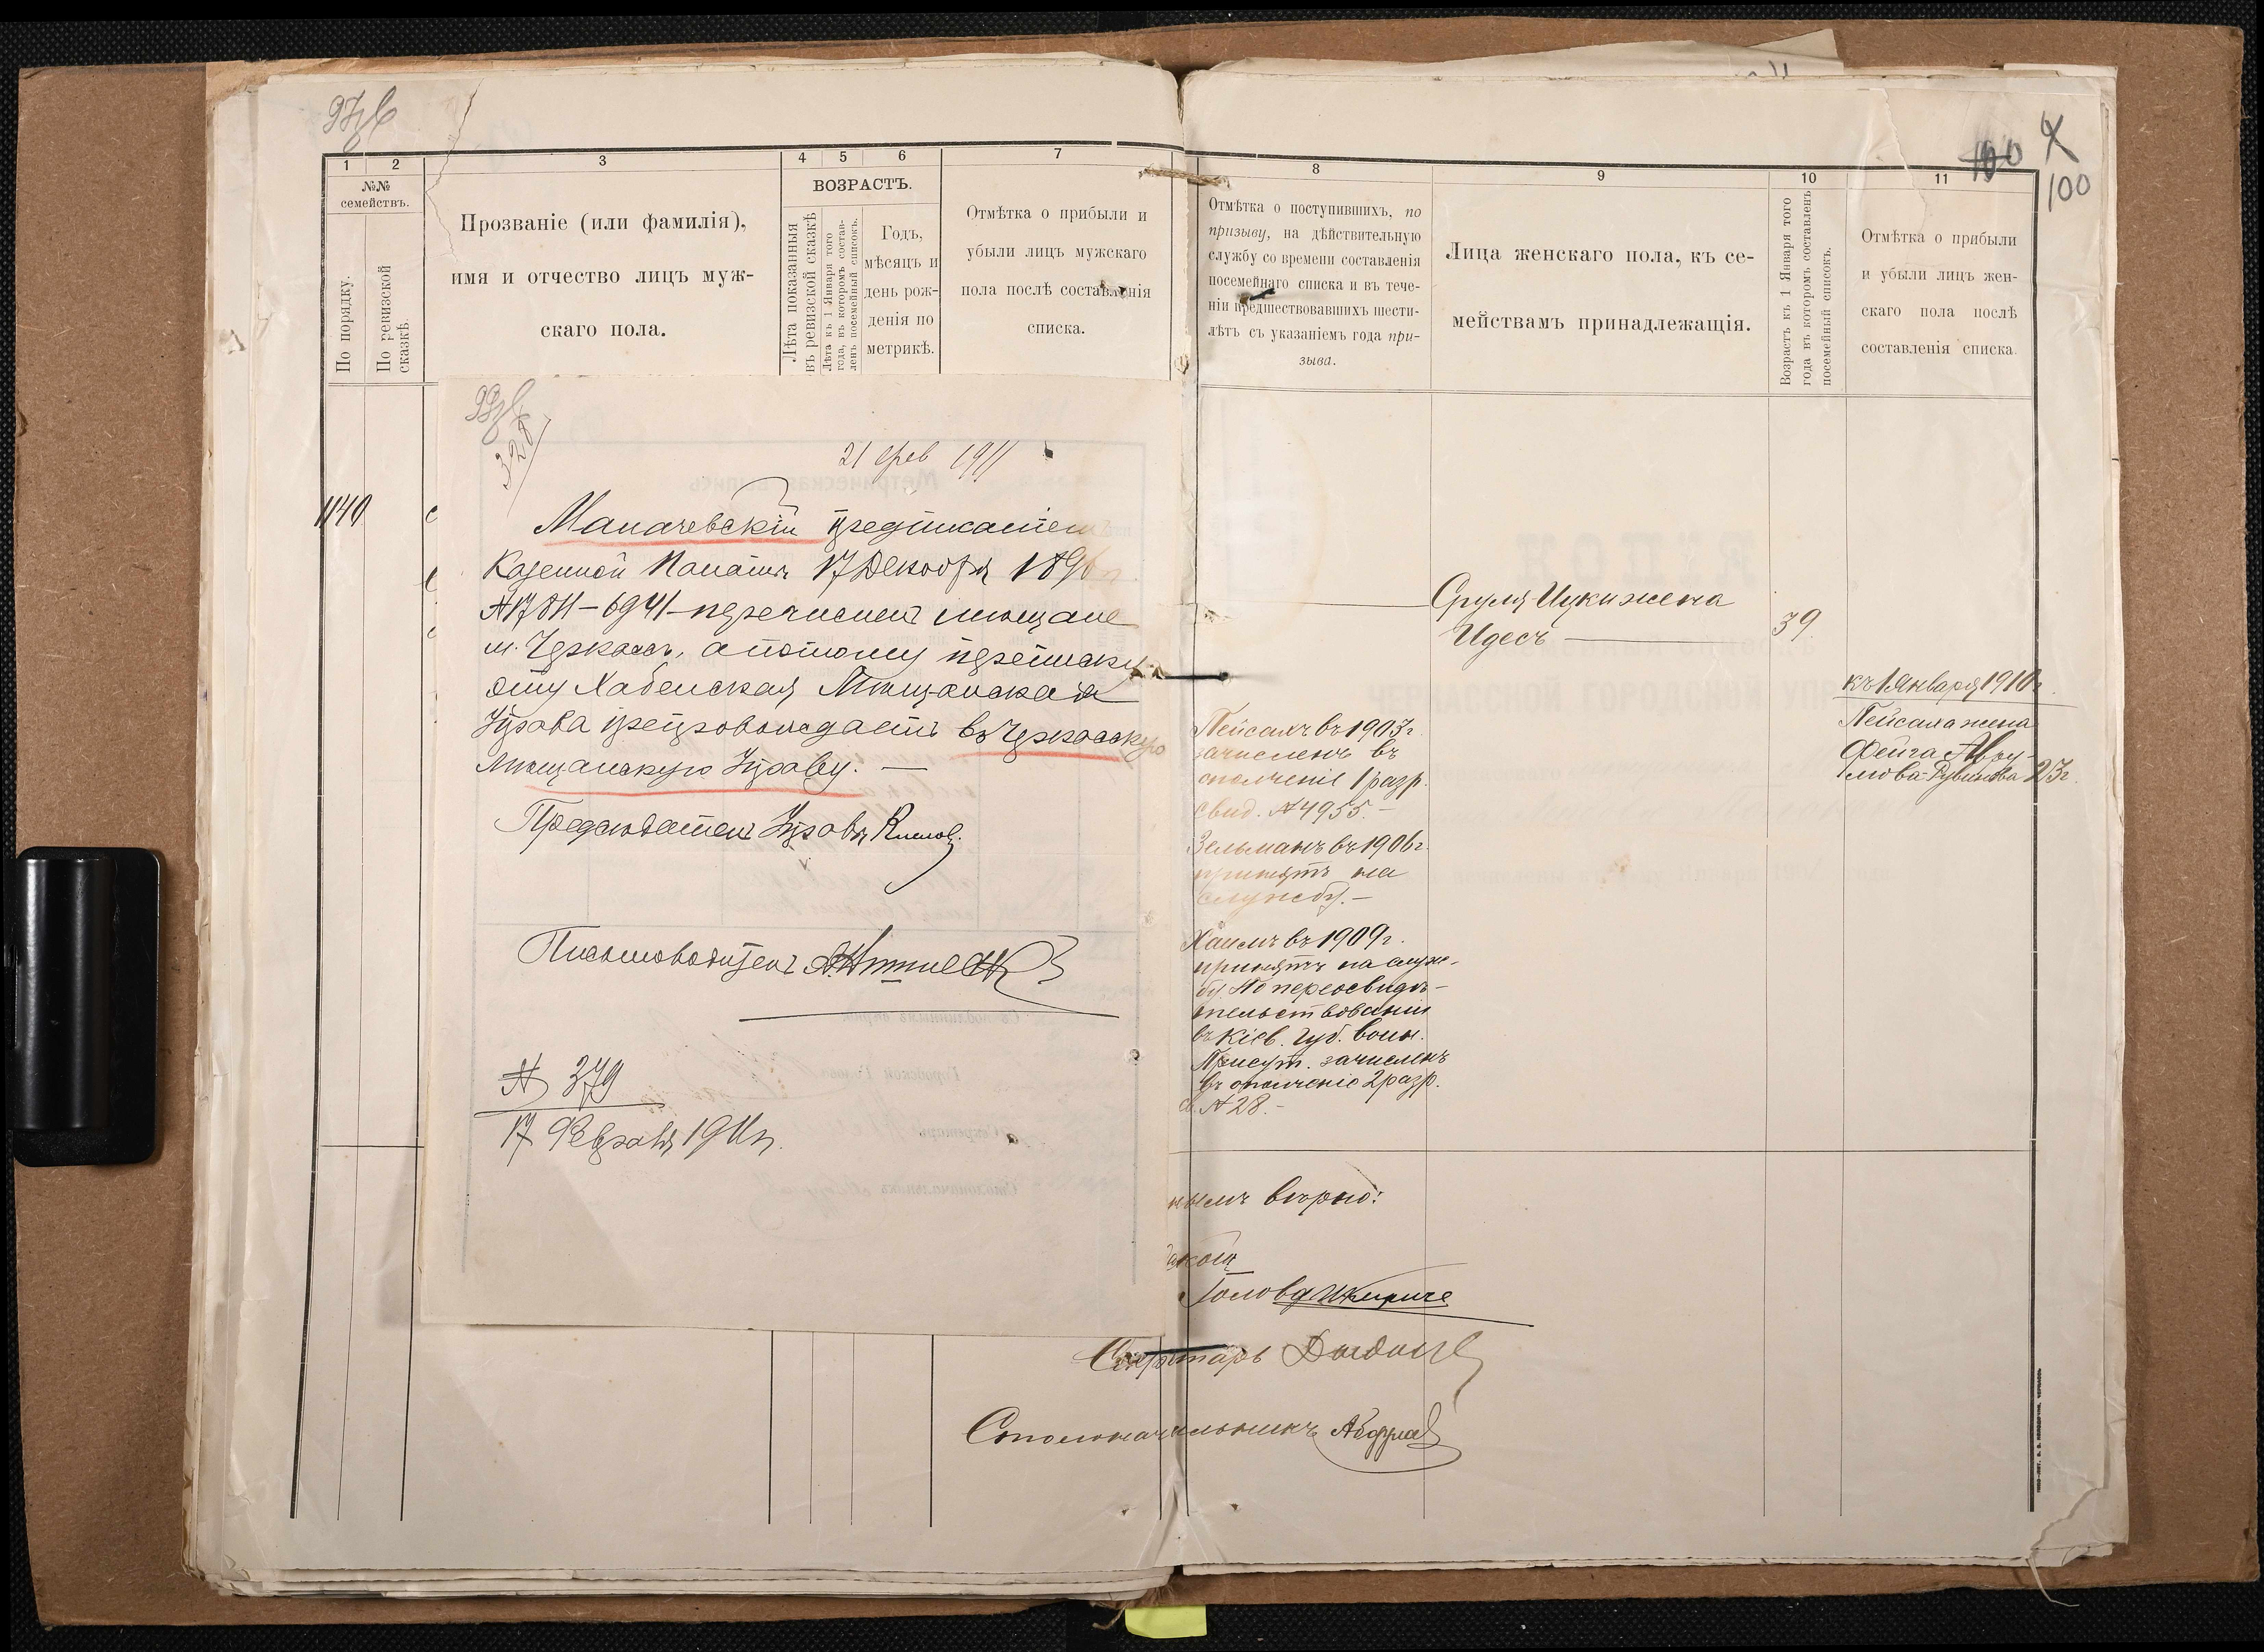 100
100
1
2
3
4
5
6
7
8
9
10
11
№№
семействъ.
По порядку.
По ревизской
сказкѣ.
Прозваніе (или фамилія),
имя и отчество лицъ муж-
скаго пола.
ВОЗРАСТЪ.
Лѣта показанныя
въ ревизской сказкѣ
Лѣта къ 1 Января того
года, въ которомъ состав-
ленъ посемейный списокъ.
Годъ,
мѣсяцъ и
день рож-
денія по
метрикѣ.
Отмѣтка о прибыли и
убыли лицъ мужскаго
пола послѣ составленія
списка.
Отмѣтка о поступившихъ, по
призыву, на дѣйствительную
службу со времени составленія
посемейнаго списка и въ тече-
ніи предшествовавшихъ шести-
лѣтъ съ указаніемъ года при-
зыва.
Лица женскаго пола, къ се-
мействамъ принадлежащія.
Возрастъ къ 1 Января того
года въ которомъ составленъ
посемейный списокъ.
Отмѣтка о прибыли
и убыли лицъ жен-
скаго пола послѣ
составленія списка.
1140
328
21 фев 1911
предписаніемъ
Казенной Палаты 17 Декабря 189
№ 17811–6941– перечисленъ мѣщане
м. Черкассъ, а потому переписку
эту Хабенская Мѣщанская
Управа препровождаетъ въ Черкасскую
Мѣщанскую Управу. —
Предсѣдатель Управы
Письмоводитель
№ 379
17 Февраля 1911 г.
Сруля Ицки жена
Идесъ — 39
къ 1 Января 1910 г.
Пейсаха жена
Фейга Авру-
мова-Рувинова 23 г.
Пейсахъ въ 1903 г.
зачисленъ въ
ополченіе 1 разр.
свид. № 4955. –
Зельманъ въ 1906 г.
принятъ на
службу. –
Хаимъ въ 1909 г.
принятъ на служ-
бу. По переосвидѣ-
тельствованіи
въ Кіев. губ. воин.
Присут. зачисленъ
въ ополченіе 2 разр.
св. № 28. –
нымъ вѣрно:
Голова
Секретарь
Столоначальникъ